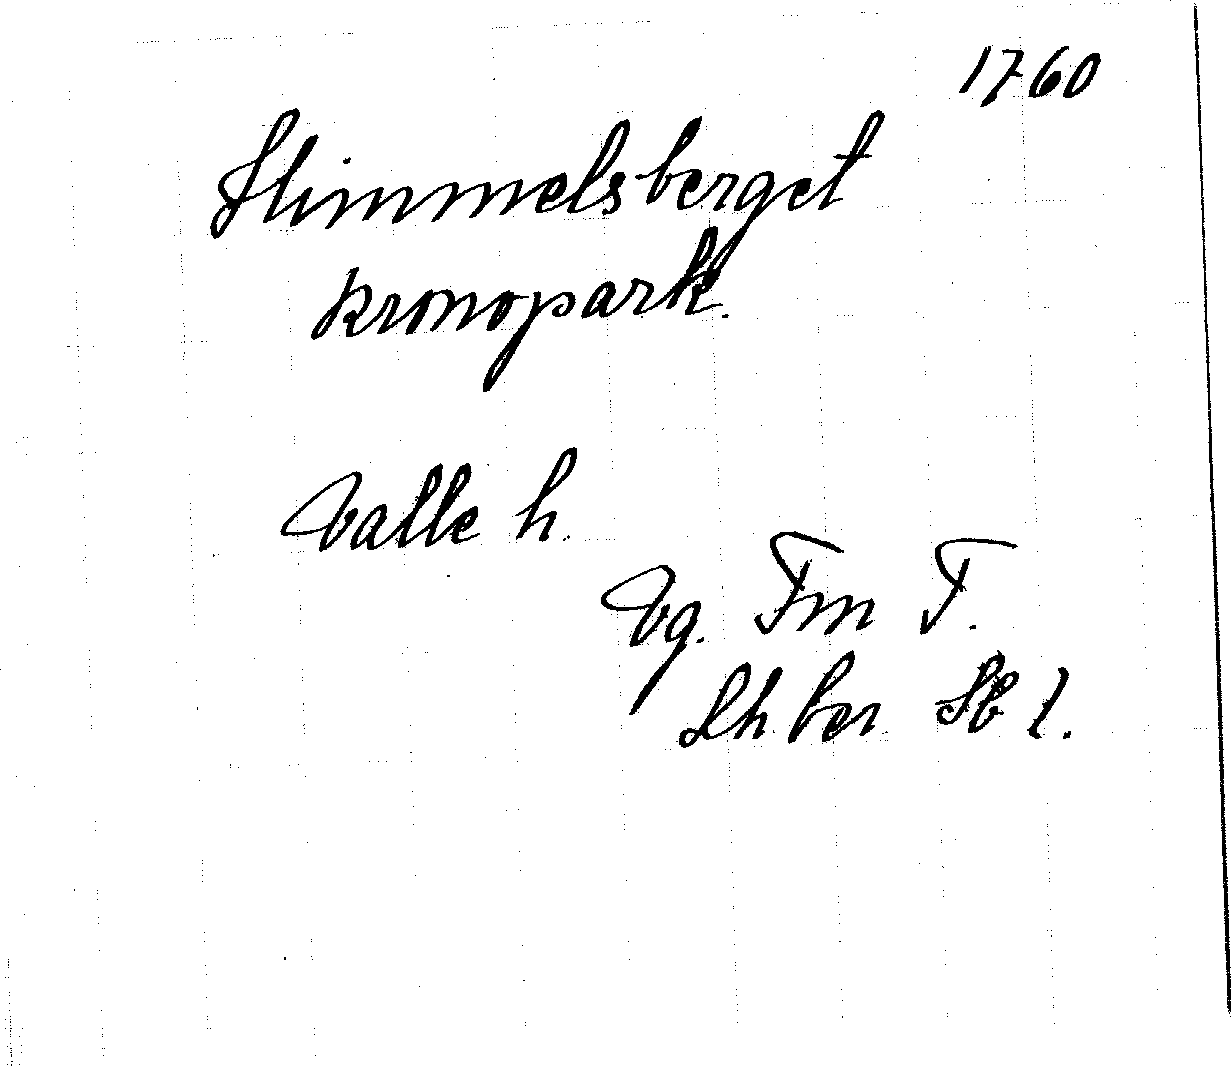 1760
Himmelsberget
kronopark.
Valle h.
Vg. Fm F.
Lhber Sk 1.